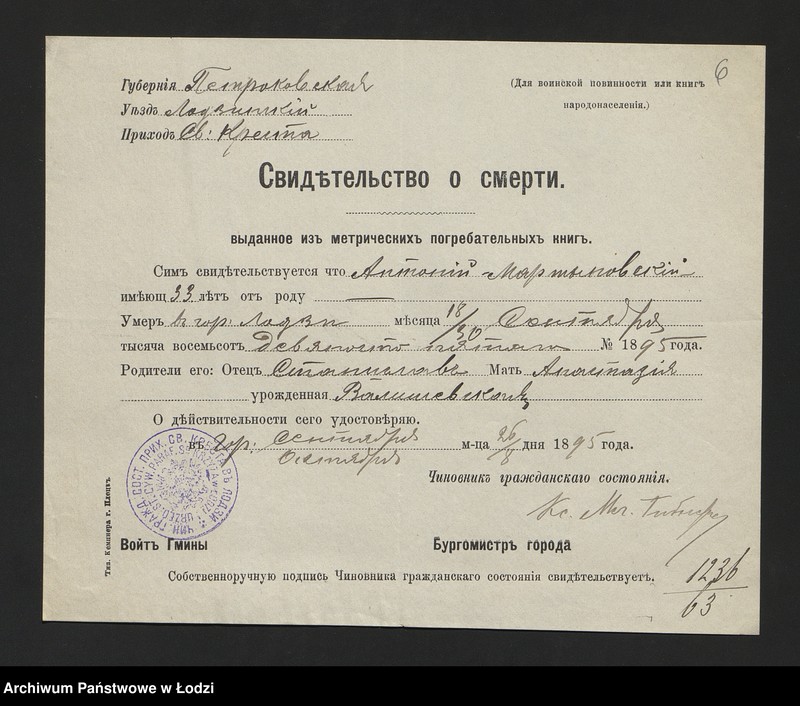 6
Губернія Петроковская
(Для воинской повинности или книгъ
народонаселенія.)
Уѣздъ Лодзинскій
Приходъ Св: Креста
Свидѣтельство о смерти.
выданное изъ метрическихъ погребательныхъ книгъ.
Симъ свидѣтельствуется что Антоній Мартыновскій
имѣющ 33 лѣтъ отъ роду —
Умеръ въ гор: Лодзи мѣсяца 18/30 Сентября
тысяча восемьсотъ девяносто пятаго № 1895 года.
Родители его: Отецъ Станиславъ Мать Анастазія
урожденная Валишевская
О дѣйствительности сего удостовѣряю.
въ гор: Сентября м-ца 26/8 дня 1895 года.
Октября
Чиновникъ гражданскаго состоянія.
Кс. Мч.
Войтъ Гмины Бургомистръ города
Собственноручную подпись Чиновника гражданскаго состоянія свидѣтельствуетъ.
1236
63
Тип. Кемпнера г. Плоцкъ.
Archiwum Państwowe w Łodzi